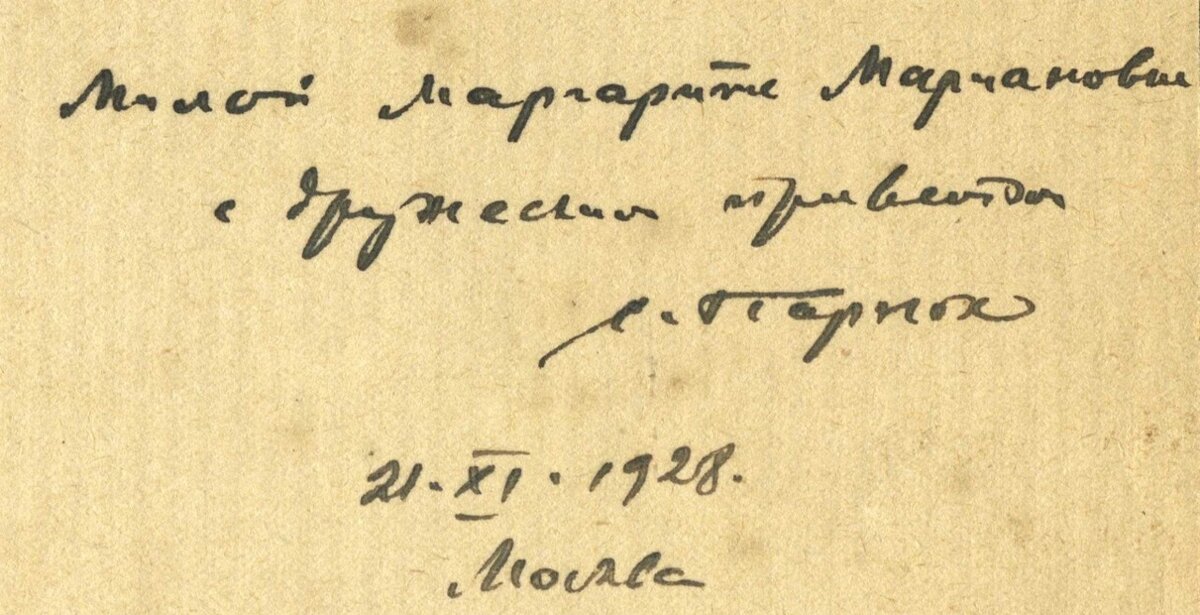 Милой Маргарите Мариановне
с дружеским приветом
С. Парнок
21. XI. 1928.
Москва